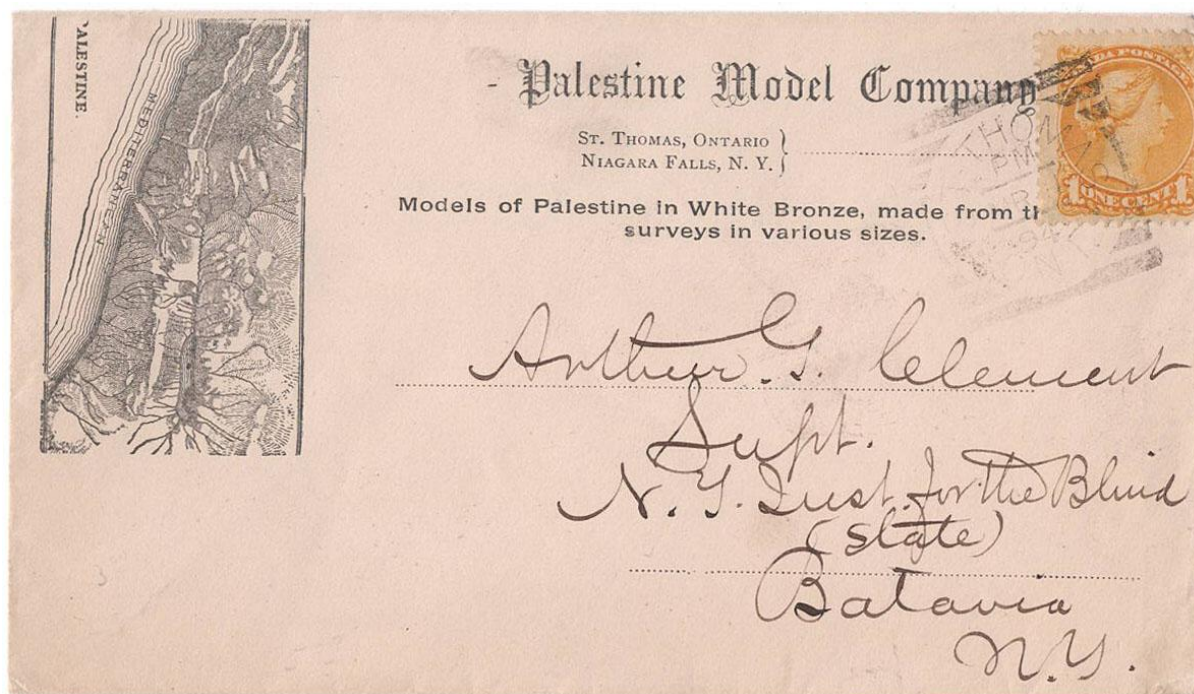 ALESTINE.
MEDITERRANEAN
Palestine Model Company
ST. THOMAS, ONTARIO
NIAGARA FALLS, N. Y.
Models of Palestine in White Bronze, made from th
surveys in various sizes.
DA POSTAGE
1 ONE CENT 1
THOMAS
PM
94
ONT
Arthur G. Clement
Supt.
N. Y. Inst. for the Blind
(State)
Batavia
N.Y.